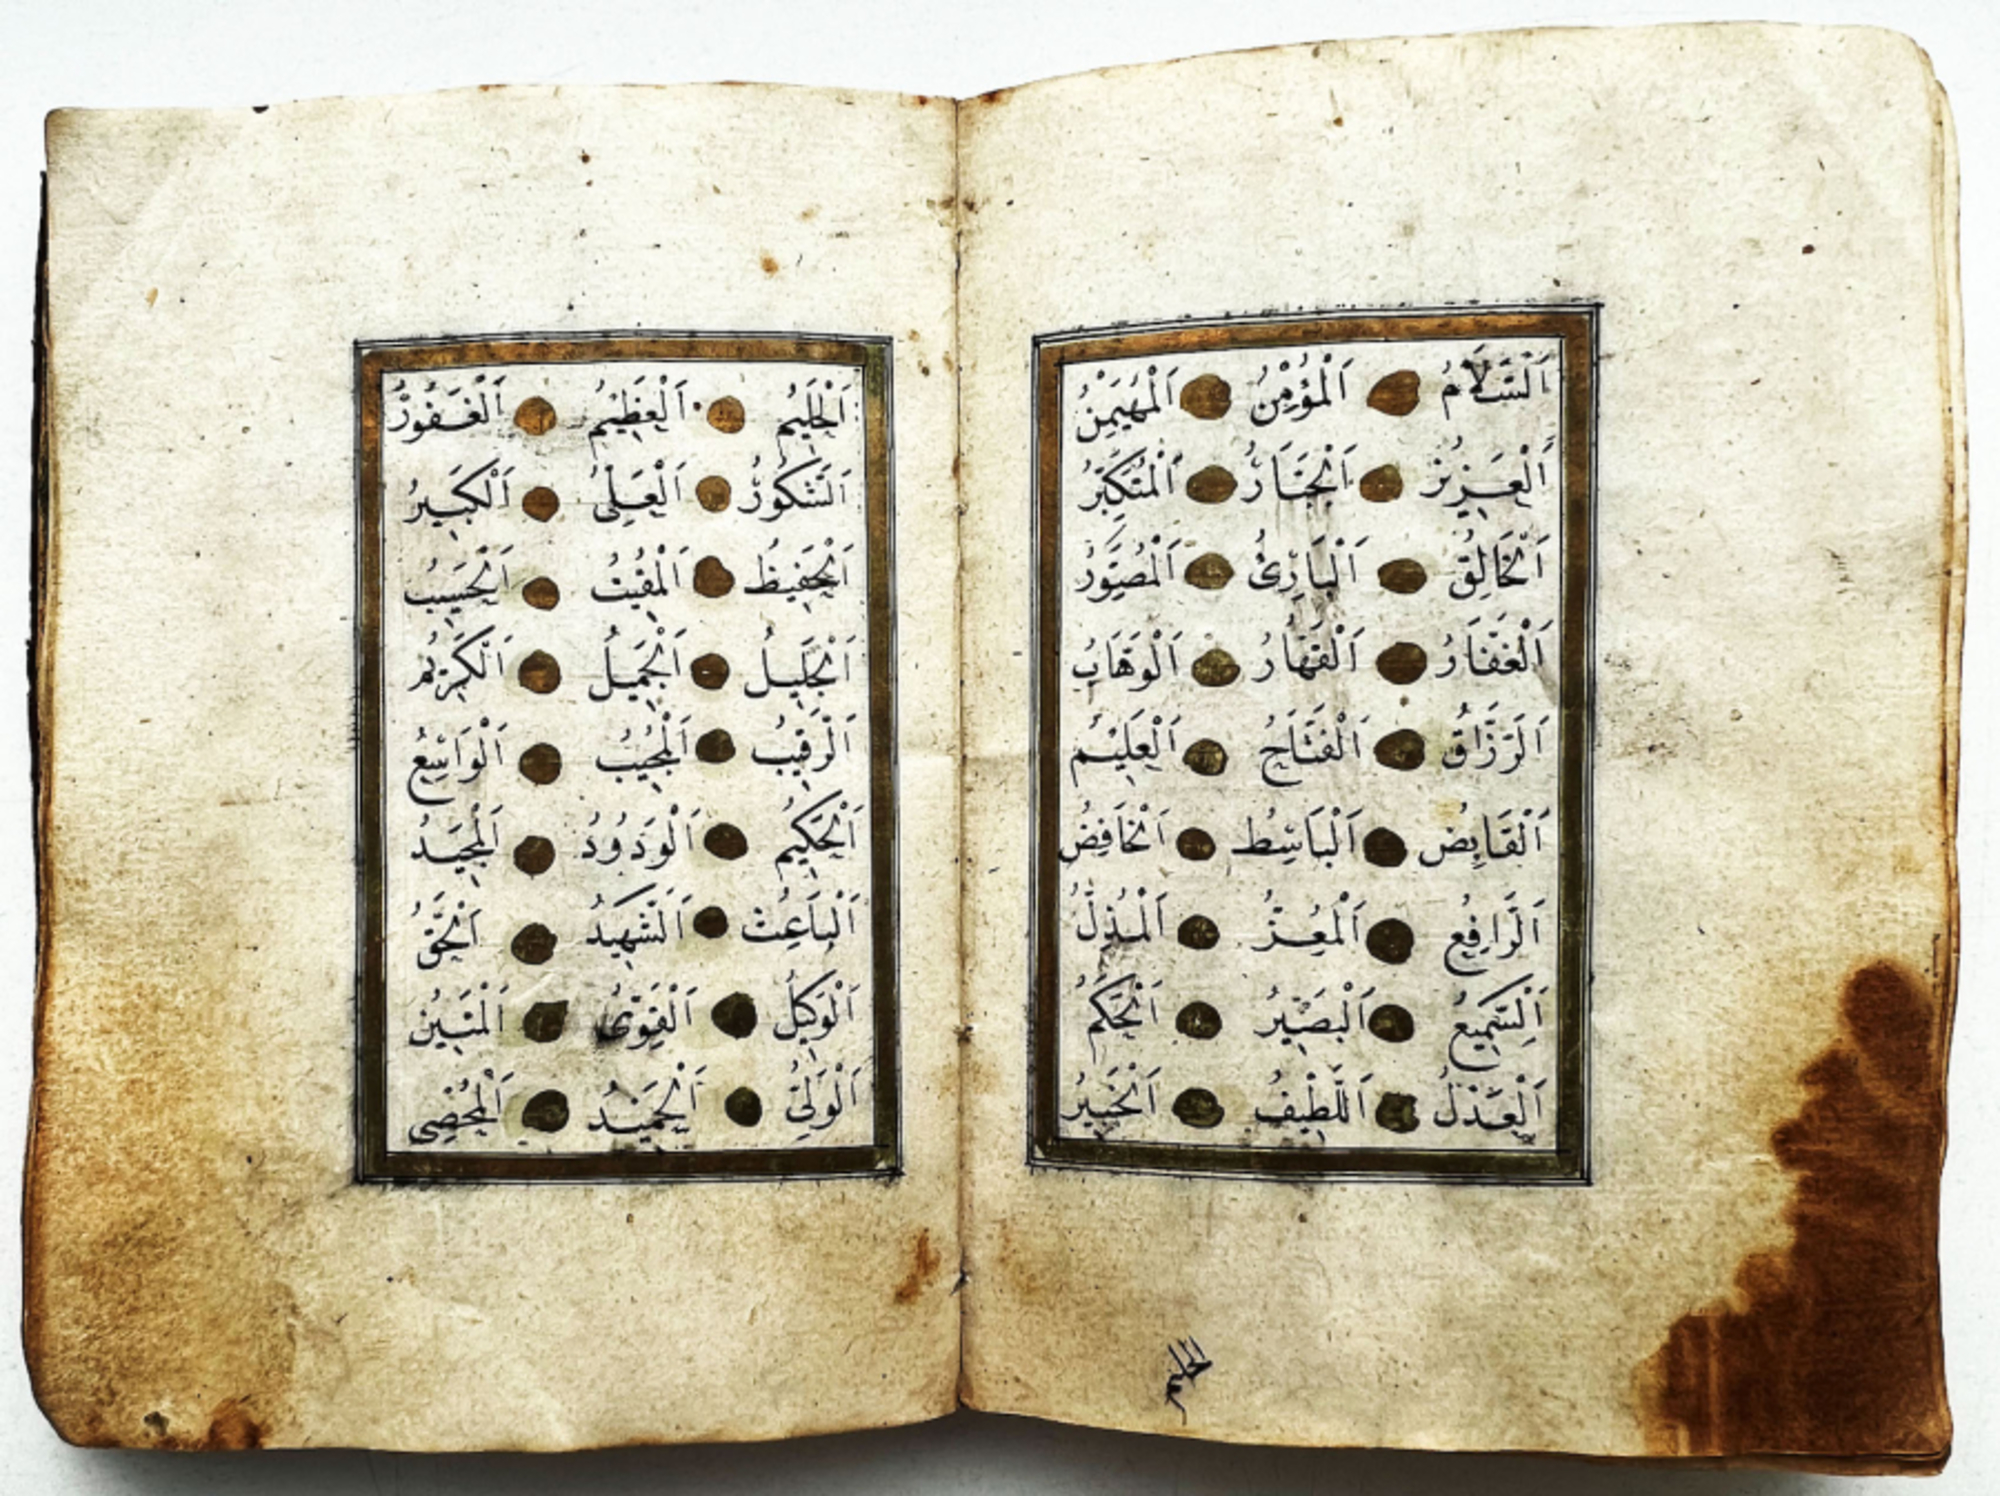 اَلسَّلَامُ اَلْمُؤْمِنُ اَلْمُهَيْمِنُ
اَلْعَزِيزُ اَلْجَبَّارُ اَلْمُتَكَبِّرُ
اَلْخَالِقُ اَلْبَارِئُ اَلْمُصَوِّرُ
اَلْغَفَّارُ اَلْقَهَّارُ اَلْوَهَّابُ
اَلرَّزَّاقُ اَلْفَتَّاحُ اَلْعَلِيْمُ
اَلْقَابِضُ اَلْبَاسِطُ اَلْخَافِضُ
اَلرَّافِعُ اَلْمُعِزُّ اَلْمُذِلُّ
اَلسَّمِيعُ اَلْبَصِيْرُ اَلْحَكَمُ
اَلْعَدْلُ اَللَّطِيْفُ اَلْخَبِيْرُ
الحليم
اَلْحَلِيْمُ اَلْعَظِيْمُ اَلْغَفُورُ
اَلشَّكُورُ اَلْعَلِىُّ اَلْكَبِيرُ
اَلْحَفِيظُ اَلْمُقِيْتُ اَلْحَسِيْبُ
اَلْجَلِيْلُ اَلْجَمِيْلُ اَلْكَرِيْمُ
اَلرَّقِيْبُ اَلْمُجِيْبُ اَلْوَاسِعُ
اَلْحَكِيْمُ اَلْوَدُودُ اَلْمَجِيْدُ
اَلْبَاعِثُ اَلشَّهِيْدُ اَلْحَقُّ
اَلْوَكِيْلُ اَلْقَوِىُّ اَلْمَتِيْنُ
اَلْوَلِىُّ اَلْحَمِيْدُ اَلْمُحْصِى